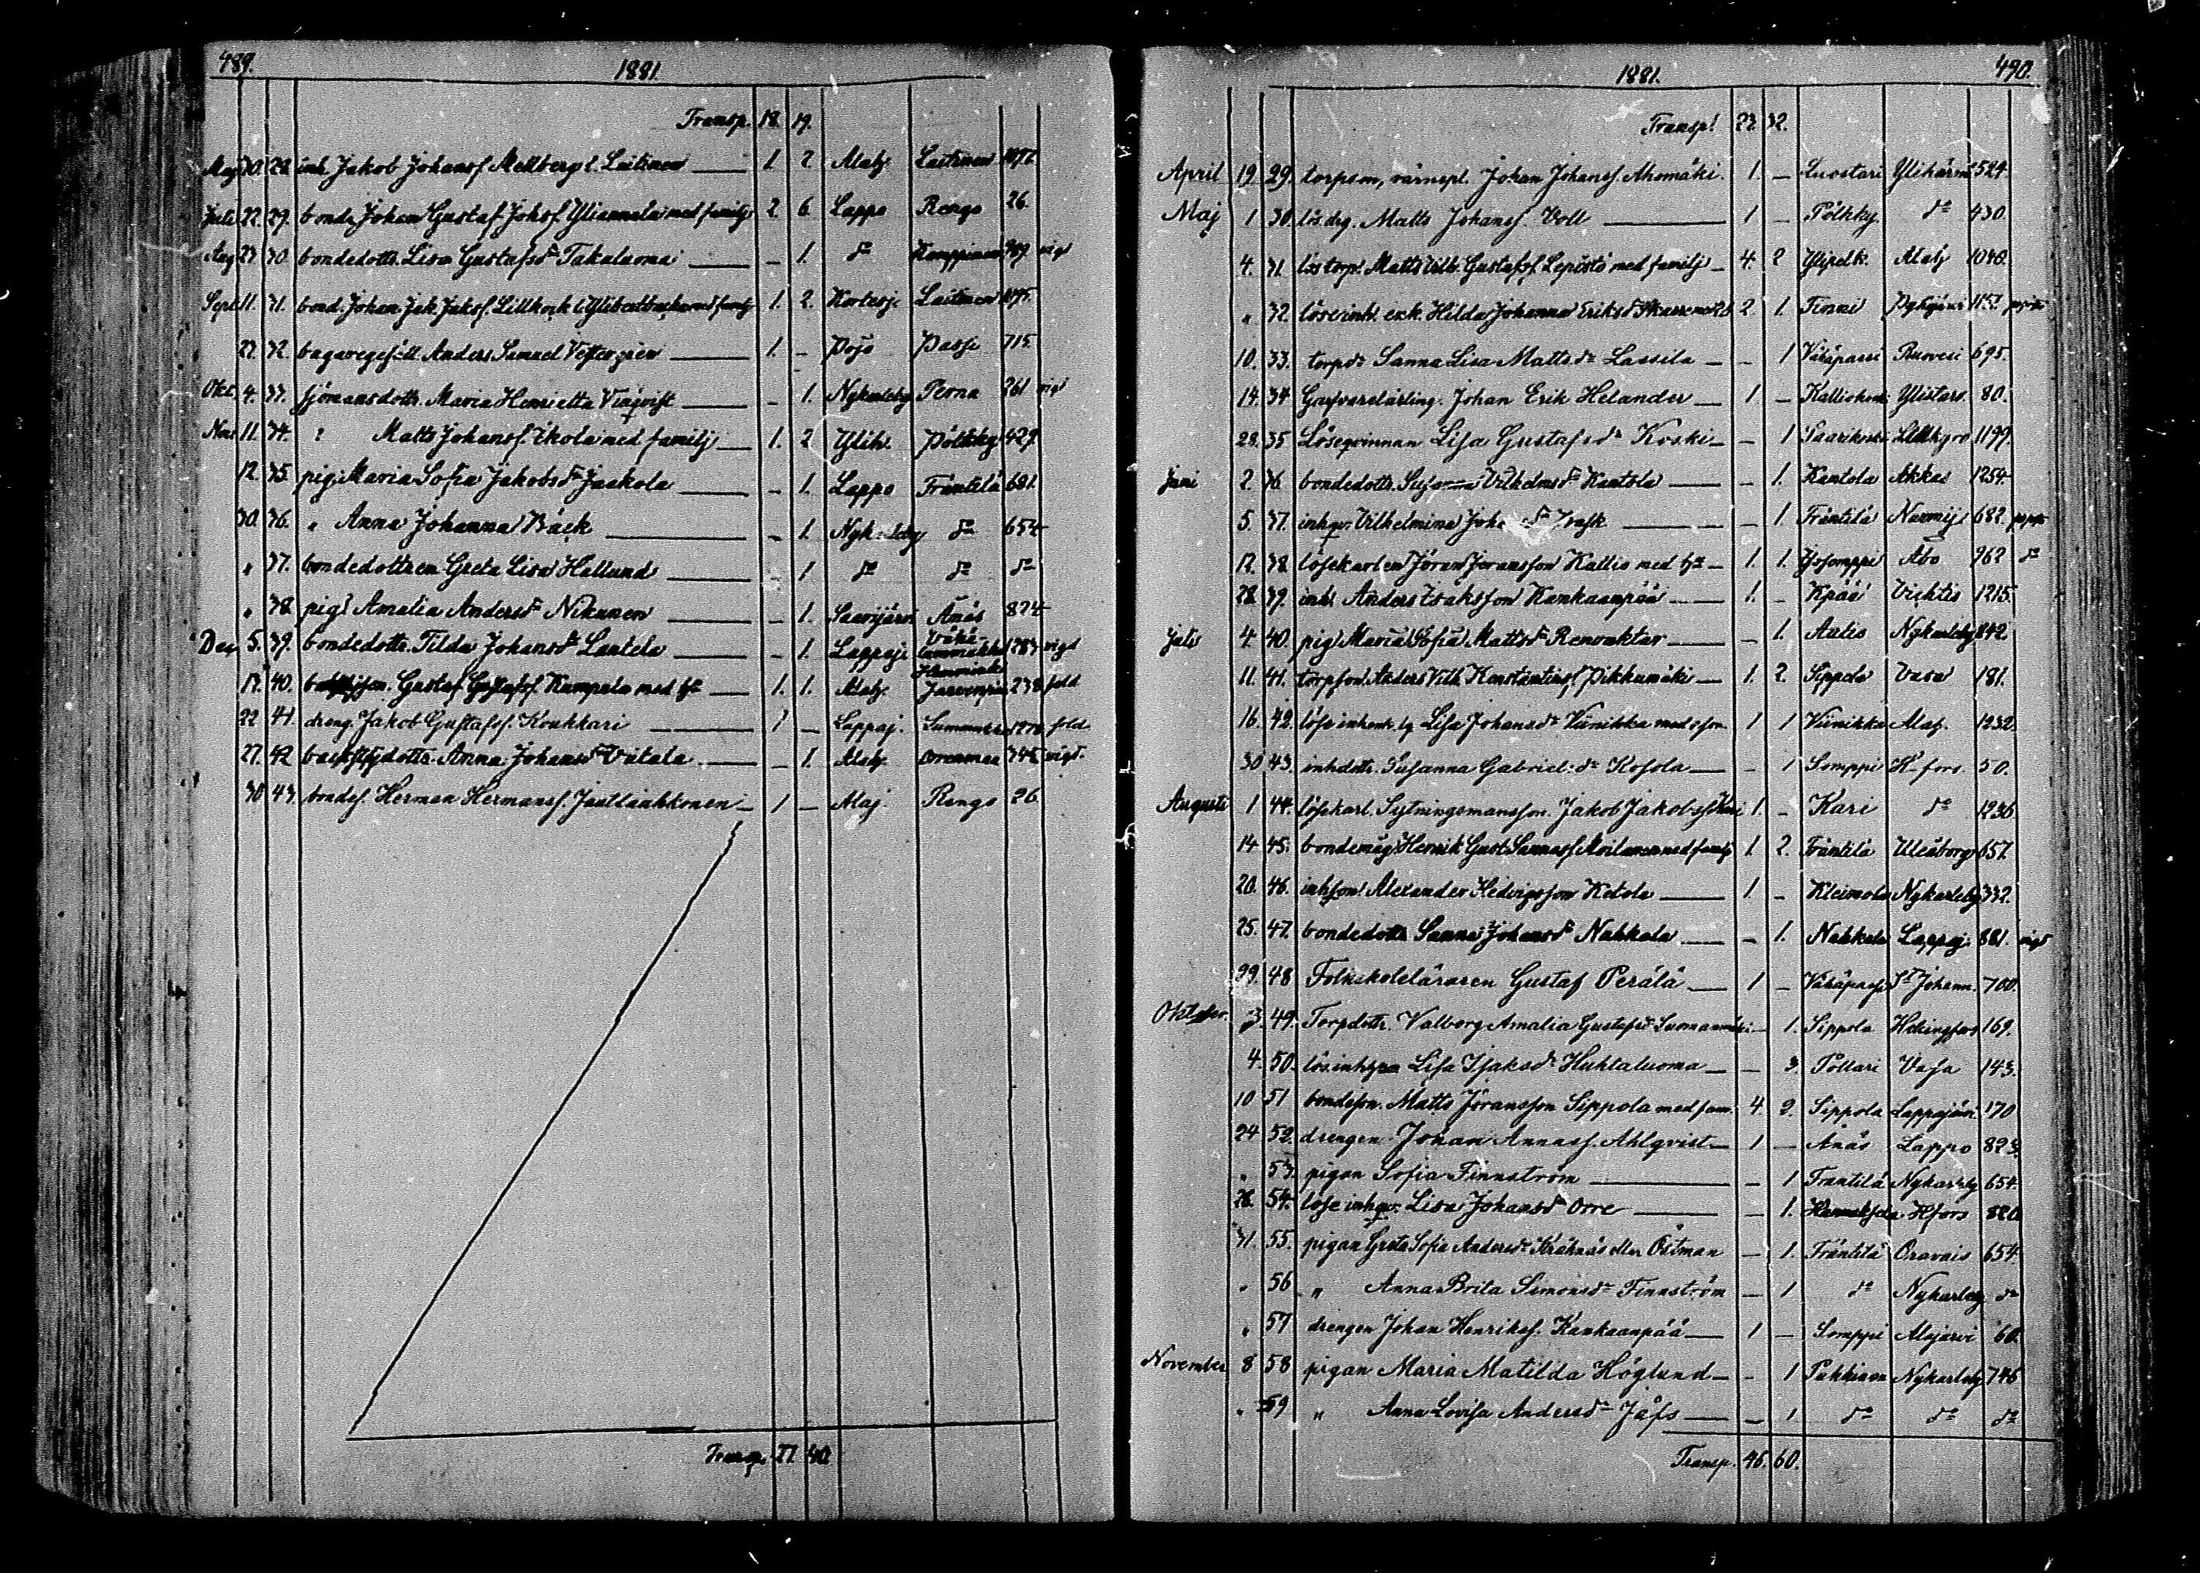 489. 1881.
Transp. 18. 19.
Maj 10. 28. inh. Jakob Johansf. Mellberg l. Laitinen 1. 2 Alaj. Laitinen
Juli 22. 29. bond. Johan Gustaf Johsf. med familj 2. 6. Lappo Rengo 26.
Aug 23 30. bondedottr. Lisa Gustafsdr Takaluoma – 1. do vigd
Sept 11. 31. bond. Johan Jak. Jaksf. Lillkonk 1. 2. Kortesj. Laitinen
27. 32. Anders Samuel 1. – 715.
Okt. 4. 33. sjömansdottr. Maria Henrietta – 1. Nykarleby Perna 261 vigd
Nov 11. 34. ? Matts Johansf. Ekola med familj 1. 2 Ylih. Pöthky 429.
12. 35. pig. Maria Sofia Jakobsdr Jaakola – 1. Lappo Frantilä 681.
30. 36. „ Anna Johanna Bäck – 1. Nykarleby do 654
„ 37. bondedottren Greta Lisa Hallund – 1 do do do
„ 38. pig. Amalia Andersdr Nikunen – 1. Saarijärvi Ånäs 824
Dec 5. 39. bondedottr. Tilda Johansdr Lantela – 1. Lappaj. 1283 vigd
17. 40. Gustaf Gustafsf. Kampela med h. 1. 1. Alaj. 238 fold
22 41. dreng. Jakob Gustafsf. Koukkari 1 – Lappaj. fold
27. 42 Anna Johansdr Viitala – 1. Alaj. vigd.
30 43. bondes. Herman Hermansf. 1 – Alaj. Rengo 26
Transp. 27. 40.
1881. 490.
Transp. 23. 32.
April 19. 29. torpson, värnepl. Johan Johansf. Ahomäki. 1. – Luostari Ylihärmä 524.
Maj 1 30. lös drg. Matts Johansf. Voll 1 – Pöthky. do 430.
4. 31. lös torp. Matts Vilh. Gustafsf. Lepistö med familj 4. 2 Alaj 1040.
„ 32. Hilda Johanna Eriksdr 2 1.
10. 33. torpdr Sanna Lisa Mattsdr Lassila – 1 Vähäpassi Ruovesi 695.
14. 34 Garfvarelärling. Johan Erik Helander 1 – Kalliokoski Ylistaro. 80.
28. 35 Löseqvinnan Lisa Gustafsdr Koski – 1 Saarikoski 1199.
Juni 2. 36 bondedottr. Susanna Vilhelmsdr Kantola – 1. Kantola Akkas 1254.
5. 37. inhqv. Vilhelmina – 1 Frantilä 682.
12. 38. lösekarlen Jöran Joransson Kallio med h. 1. 1. Åbo 262 do
28. 39. inh. Anders Isaksson Kankaanpää 1. – Kpää Vichtis 1215.
Juli 4. 40. pig. Maria Sofia Mattsdr Renvaktar – 1. Antio Nykarleby 842
11. 41. torpson Anders Vilh. Konstantinsf. Pikkumäki 1. 2. Sippola Vasa 181.
16. 42. Lisa Johansdr Viinikka med son 1 1 Viinikka Alaj. 1232.
30 43. inhdottr. Susanna Gabrielsdr Kosola – 1 Somppi H-fors. 50.
Augusti 1 44. lösekarl. Sytningsmansson. Jakob Jakobsson Kari 1. – Kari do 1236
14 45. bondemåg. Henrik Gust. med familj 1. 2. Frantilä Uleåborg 657.
20. 46. inhson Alexander Hedvigsson Ketola 1 – Kleimola Nykarleby 332.
25. 47. bondedottr Sanna Johansdr Nahkala – 1. Nahkala Lappaj. 881. vigd
29. 48 Folkskoleläraren Gustaf Perälä 1 – Vähäpassi St. Johann. 700.
Oktober. 3. 49. Torpdottr. Valborg Amalia Gustafsdr – 1. Sippola Helsingfors 169.
4. 50. Lisa Isaksdr Huhtaluoma – 3. Pollari Vasa 143.
10 51 bondeson. Matts Joransson Sippola med fam. 4. 2. Sippola Lappajärvi 170
24 52. drengen Johan Annasf. Ahlqvist 1 – Ånäs Lappo 823.
„ 53. pigan Sofia Finnström – 1 Frantilä Nykarleby 654.
26. 54. löse inhqv. Lisa Johansdr Orre – 1. Hfors 820
31. 55. pigan Greta Sofia Andersdr eller Östman – 1. Frantilä Oravais 654.
„ 56 „ Anna Brita Simonsdr Finnström – 1 do Nykarleby do
„ 57 drengen Johan Henriksf. Kankaanpää 1 – Somppi Alajärvi 60.
November 8 58 pigan Maria Matilda Höglund – 1 Nykarleby 746
„ 59 „ Anna Lovisa Andersdr Jåfs – 1 do do do
Transp. 46. 60.